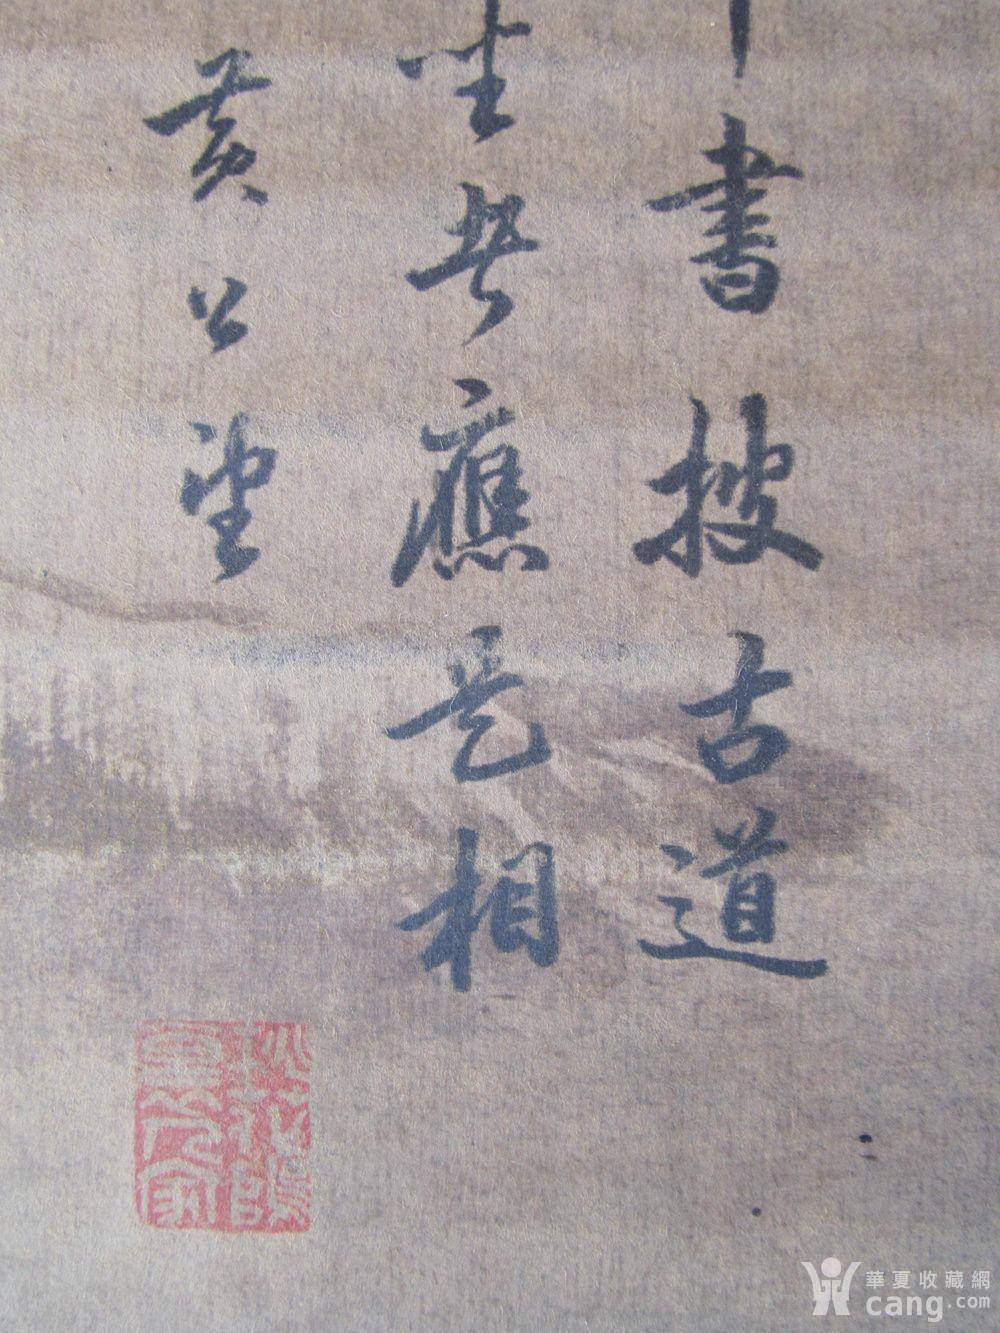 書搜古道
坐者應是相
黄公望
華夏收藏網
cang.com